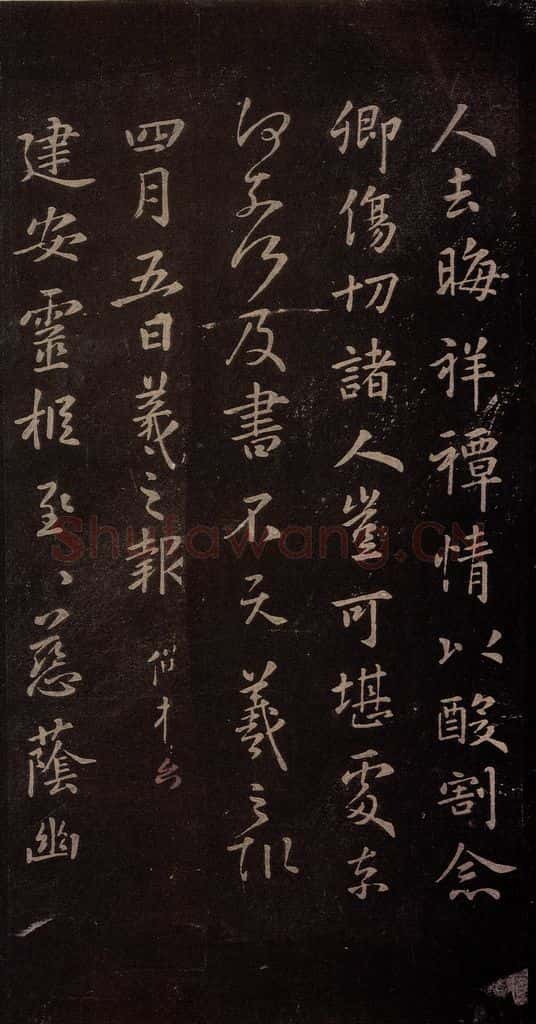 人去晦祥禫情以酸割念
卿傷切諸人豈可堪處奈
何奈何及書不羲之報
四月五日羲之報
建安靈柩至〻慈蔭幽
Shufawang.CN